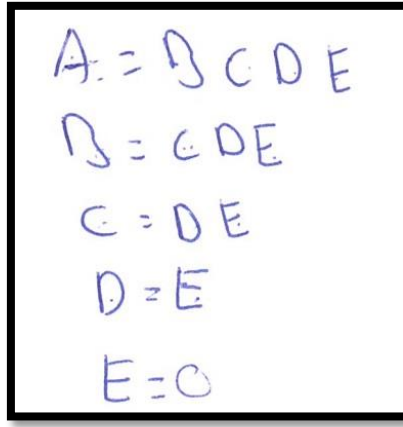 A = B C D E
B = C D E
C = D E
D = E
E = 0